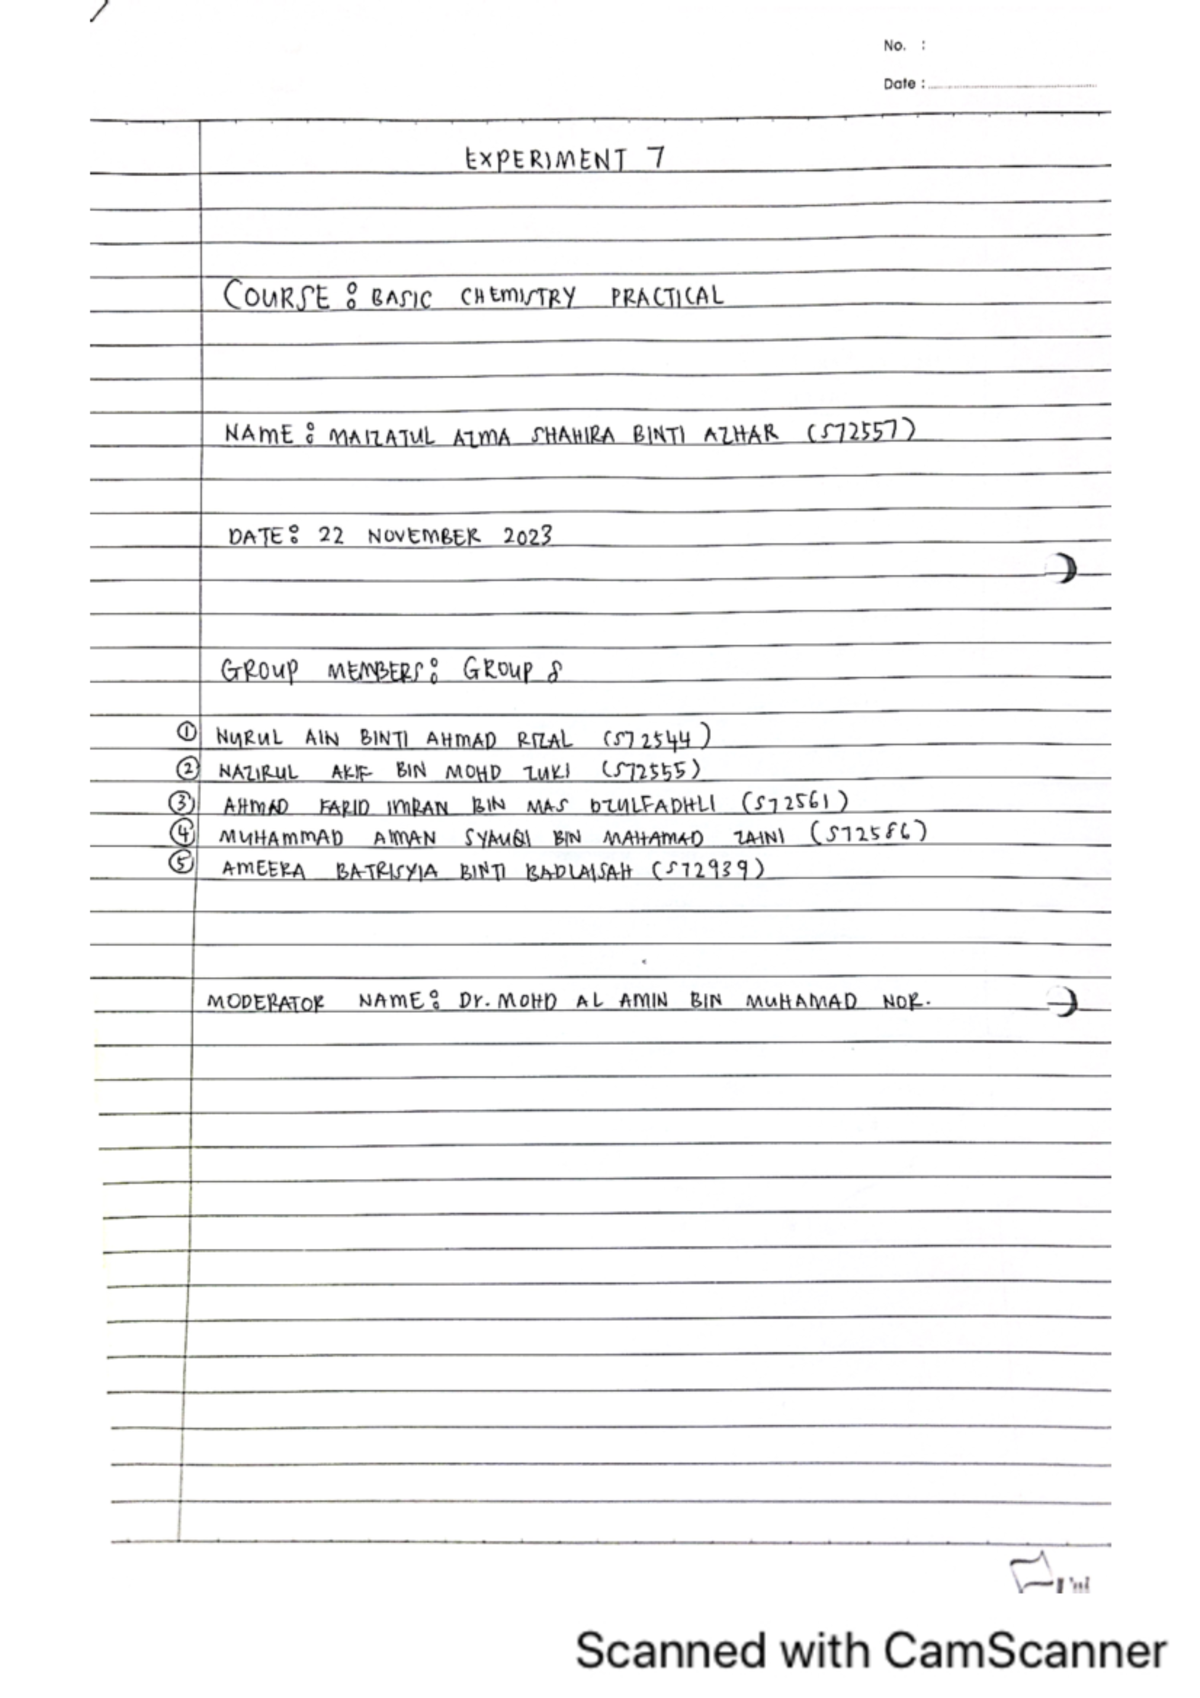 No. :
Date :
EXPERIMENT 7
COURSE : BASIC CHEMISTRY PRACTICAL
NAME : MAIZATUL AZMA SHAHIRA BINTI AZHAR (S72557)
DATE : 22 NOVEMBER 2023
GROUP MEMBERS : GROUP 8
① NURUL AIN BINTI AHMAD RIZAL (S72544)
② NAZIRUL AKIF BIN MOHD ZUKI (S72555)
③ AHMAD FARID IMRAN BIN MAS DZULFADHLI (S72561)
④ MUHAMMAD AIMAN SYAUQI BIN MAHAMAD ZAINI (S72586)
⑤ AMEERA BATRISYIA BINTI BADLAISAH (S72939)
MODERATOR NAME : Dr. MOHD AL AMIN BIN MUHAMAD NOR.
Scanned with CamScanner